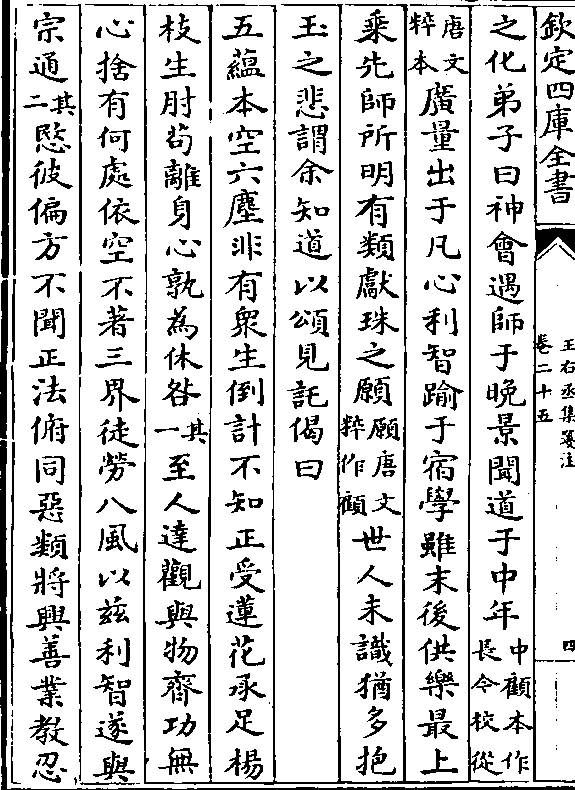 欽定四庫全書
王右丞集箋注
卷二十五
四
之化弟子曰神會遇師于晚景聞道于中年中顧本作長今校從
唐文粹本廣量出于凡心利智踰于宿學雖末後供樂最上
乗先師所明有類獻珠之願願唐文粹作顧世人未識猶多抱
玉之悲謂余知道以頌見託偈曰
五蘊本空六塵非有衆生倒計不知正受蓮花承足楊
枝生肘茍離身心孰為休咎其一至人達觀與物齊功無
心捨有何處依空不著三界徒勞八風以兹利智遂與
宗通其二愍彼偏方不聞正法俯同惡類將興善業教忍